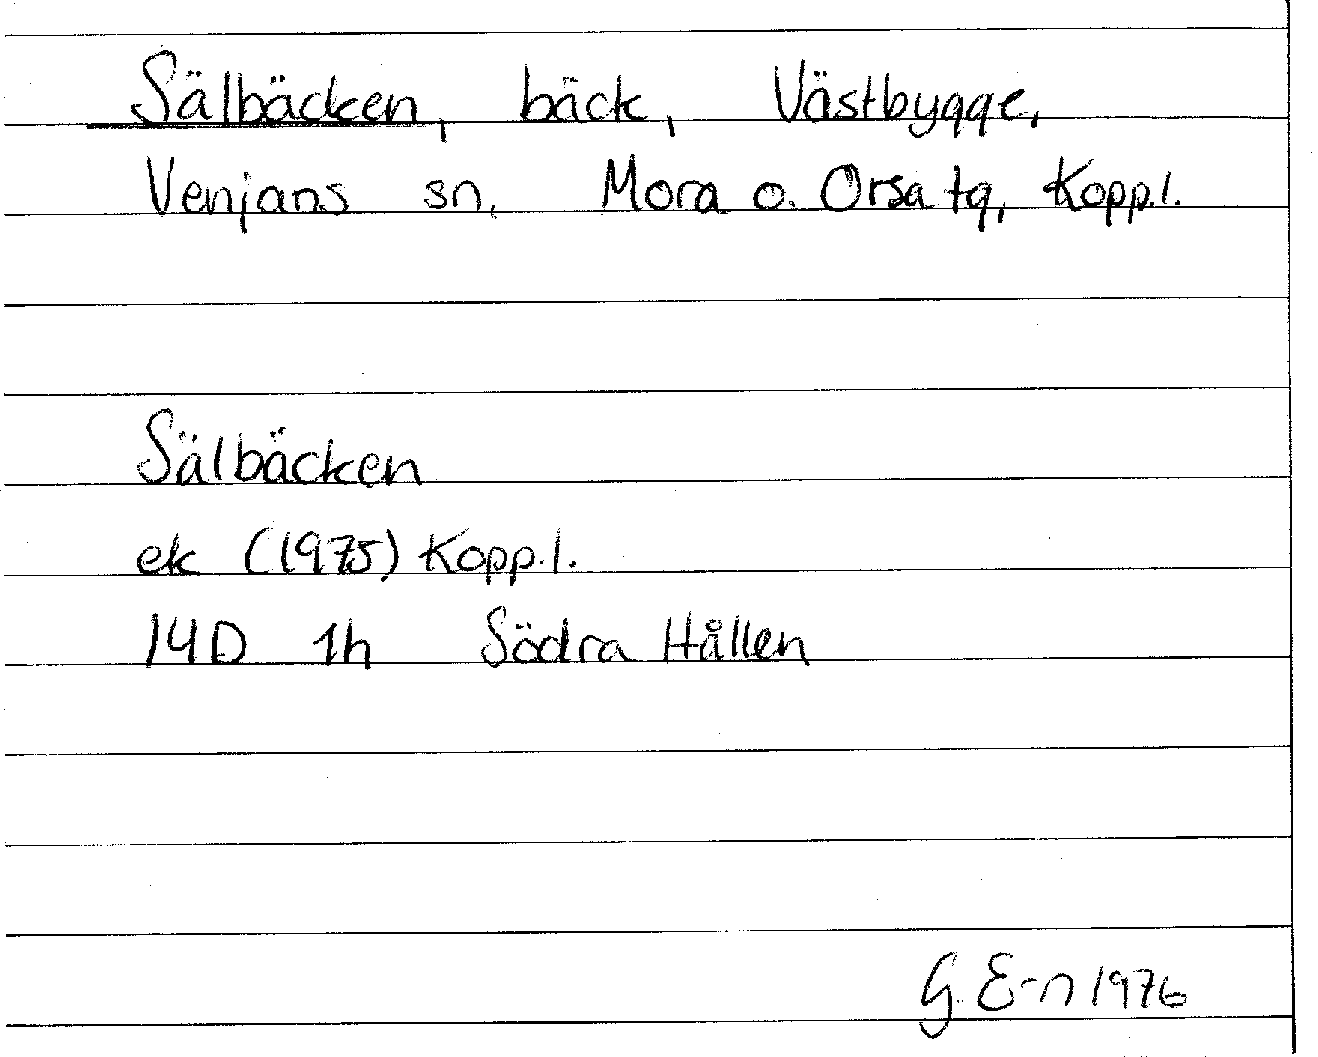 Sälbäcken, bäck, Västbygge,
Venjans sn, Mora o. Orsa tg, Kopp.l.
Sälbäcken
ek (1975) Kopp.l.
14D 1h Södra Hållen
G. E-n 1976